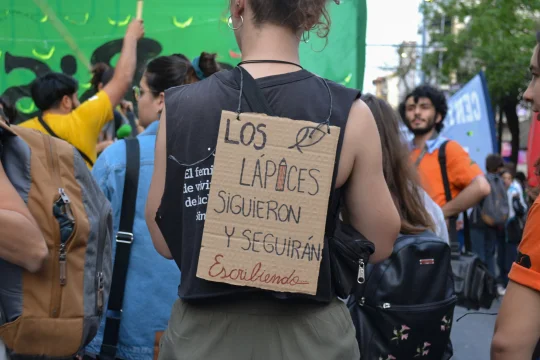 LOS
LÁPICES
SIGUIERON
Y SEGUIRÁN
Escribiendo
El femi
de viv
de luc